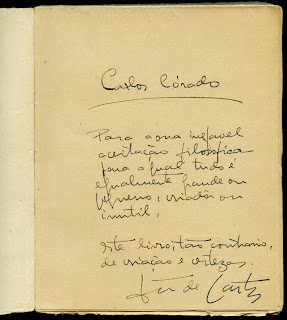 Carlos
Para a sua
aceitação filosofica
para a qual tudo é
egualmente grande ou
pequeno, criador ou
inutil,
este livro, tão contrario,
de criação e certezas.
de